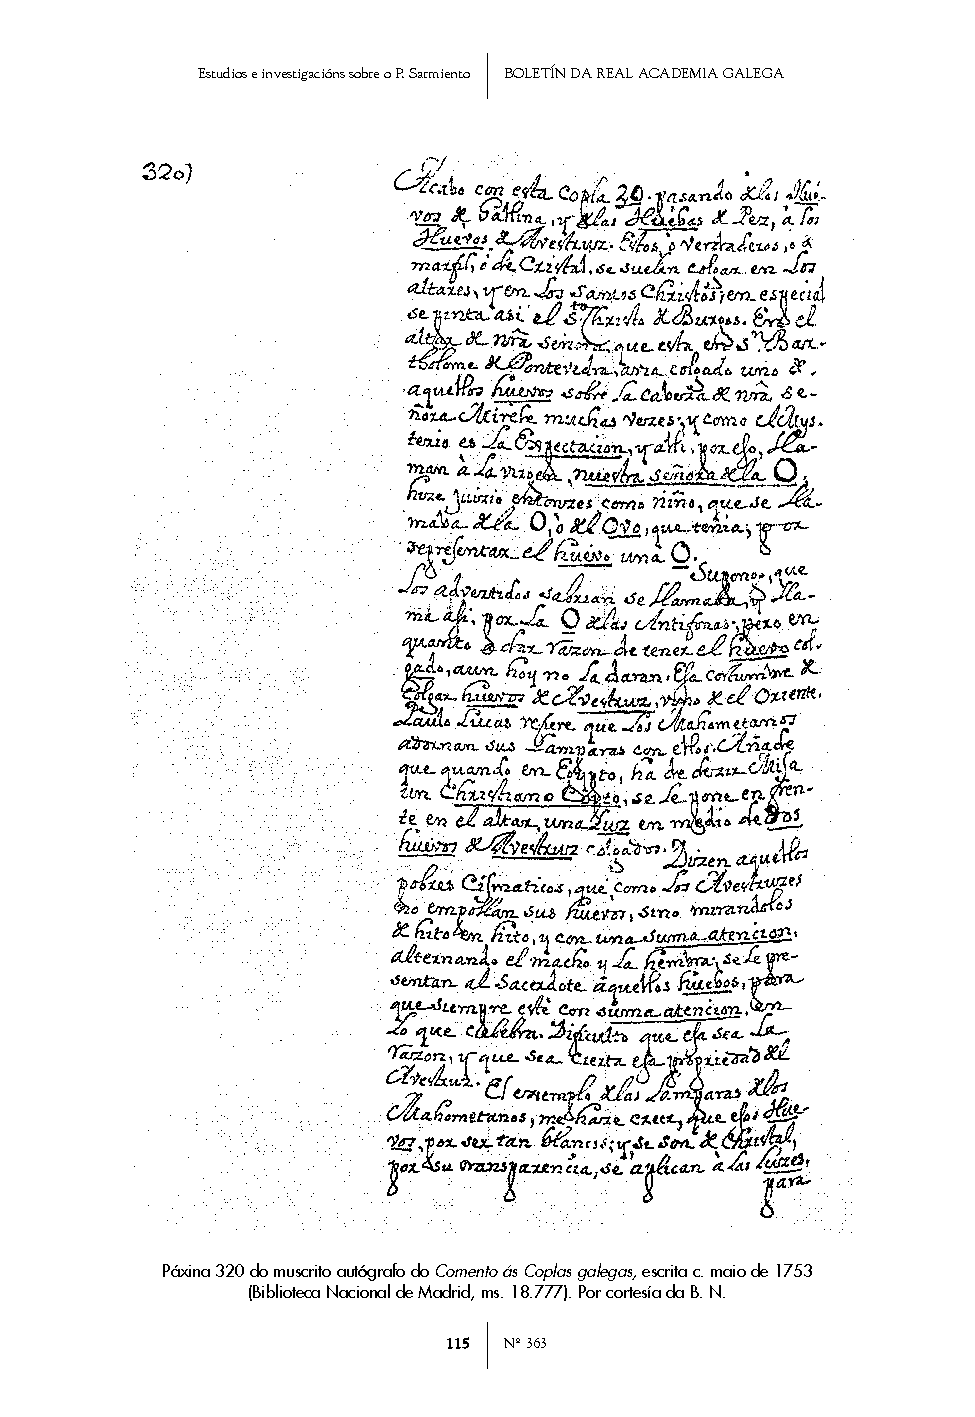 Estudios e investigacións sobre o P. Sarmiento
BOLETÍN DA REAL ACADEMIA GALEGA
320)
Acabo con esta Copla 20. pasando de los Hue-
vos de Gallina, y de las Huebas de Pez, à los
Huevos de Avestruz. Estos, ò verdaderos, o de
marfil, ó de Cristal, se suelen colgar en los
altares, y en los Santos Christos; en especial
se pinta asi el Sto. Christo de Burgos. En el
altar de nra señora, que esta en Sn. Bar-
tholome de Pontevedra, avia colgado uno de
aquellos huevos sobre la cabeza de nra. Se-
ñora. Mirèle muchas vezes; y como el Mys-
terio es la Expectacion, y alli, por eso, lla-
man à la virgen, nuestra señora de la O,
hize juizio entonzes como niño, que se lla-
maba de la O, ò del Ovo, que tenia; por
representar el huevo una O.
Supongo, que
los advertidos sabrian se llamaba, y lla-
ma asi, por la O de las Antifonas; pero en
quanto a dar razon de tener el huevo col-
gado, aun hoy no la daran. Esa costumbre de
Colgar huevos de Avestruz, vino de el Oriente.
Paulo Lucas refiere que los Mahometanos
adornan sus Lamparas con ellos. Añade
que quando en Egypto, ha de dezir Misa
un Christiano Copto, se le pone en fren-
te en el altar, una luz en medio de dos
huevos de Avestruz colgados. Dizen aquellos
pobres Cismaticos, que como los Avestruzes
no empollan sus huevos, sino mirandolos
de hito en hito, y con una suma atencion,
alternando el macho y la hembra; se le pre-
sentan al Sacerdote aquellos huebos, para
que siempre estè con suma atencion, en
lo que celebra. Dificulto que esa sea la
razon, y que sea cierta esa propriedad del
Avestruz. El exemplo de las Lamparas de los
Mahometanos, me haze creer, que esos Hue-
vos, por ser tan blancos; y, se son de Christal,
por su transparencia, se aplican à las luzes,
para
Páxina 320 do muscrito autógrafo do Comento ás Coplas galegas, escrita c. maio de 1753
(Biblioteca Nacional de Madrid, ms. 18.777). Por cortesía da B. N.
115
Nº 363